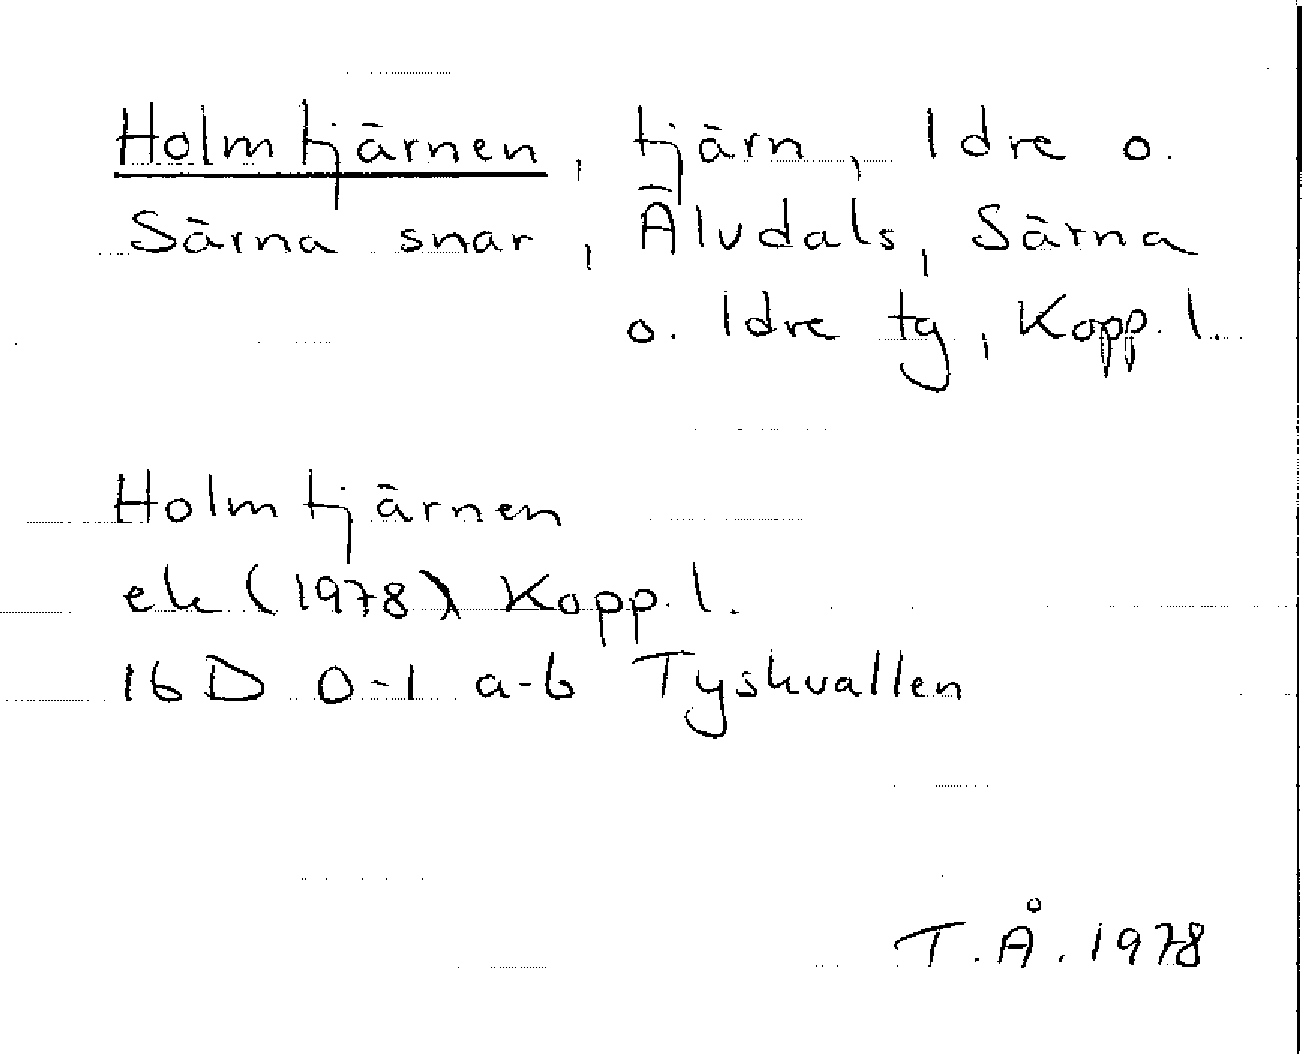 Holmtjärnen, tjärn, Idre o.
Särna snar, Älvdals, Särna
o. Idre tg, Kopp. l.
Holmtjärnen
ek (1978) Kopp. l.
16 D 0-1 a-b Tyskvallen
T. Å. 1978